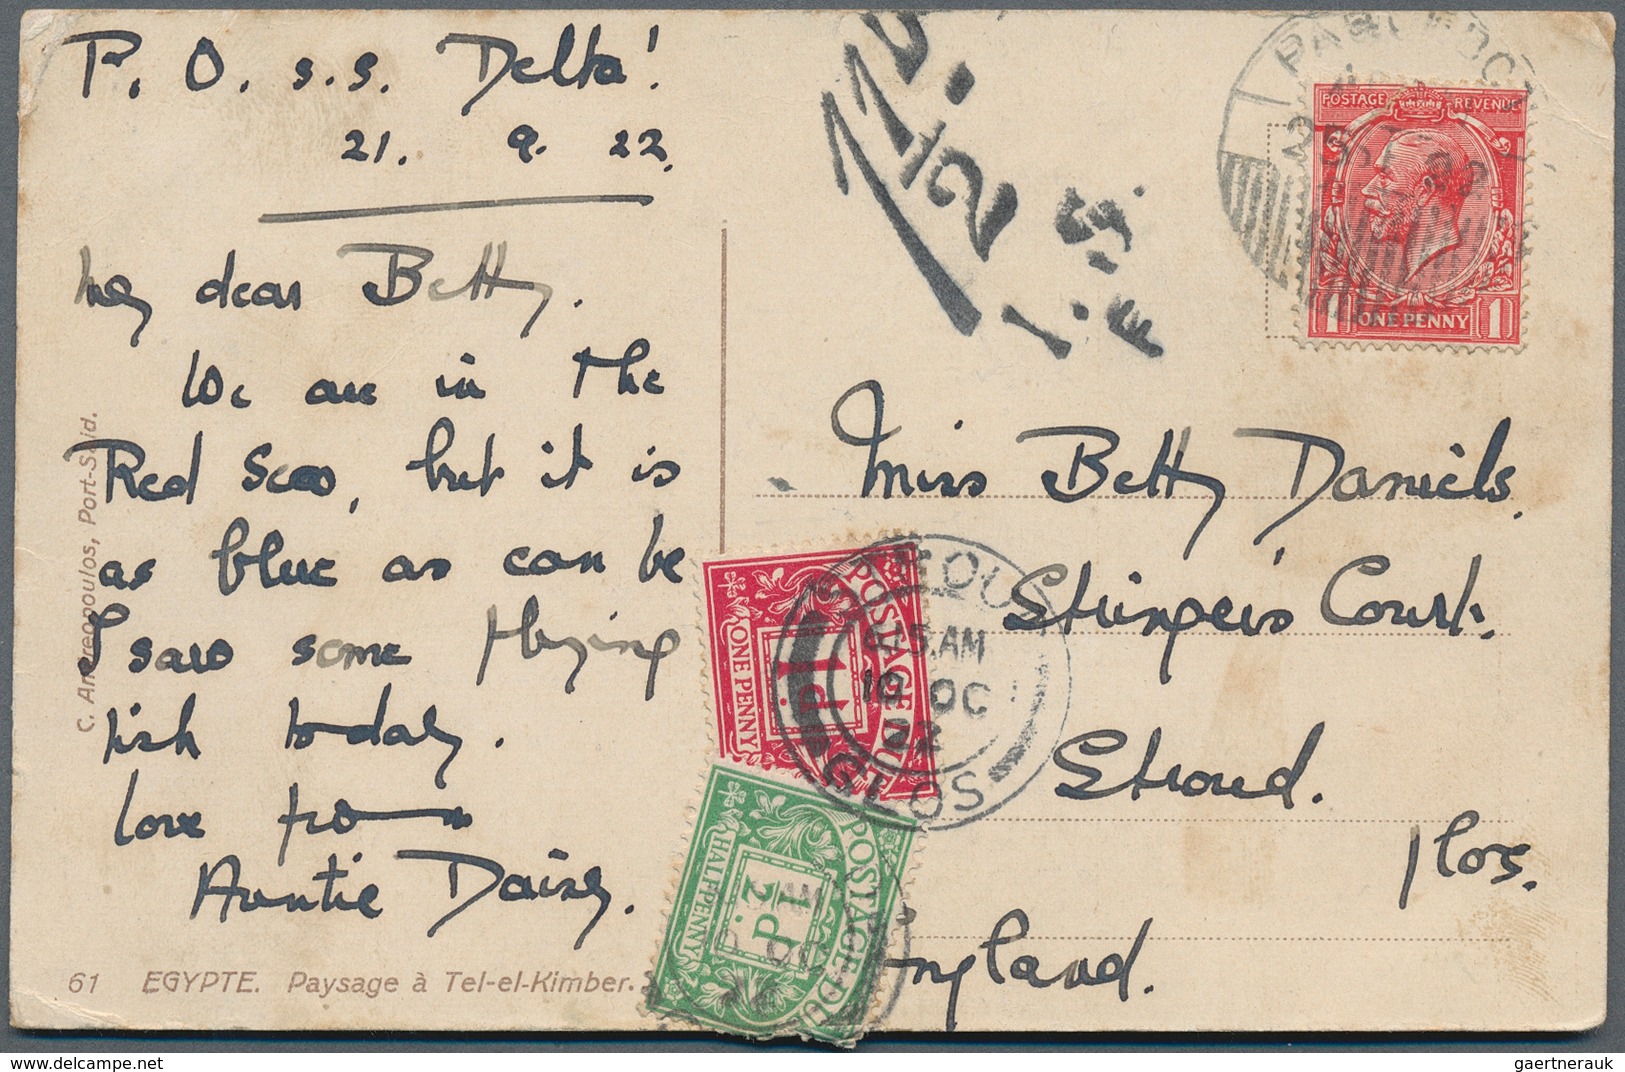 P. O. s.s. Delta!
21. 9. 22.
My dear Betty.
We are in the
Red Sea, but it is
as blue as can be
I saw some flying
fish today.
love from
Auntie Daisy.
61 EGYPTE. Paysage à Tel-el-Kimber.
Port-Said.
12
F. S.
POSTAGE REVENUE
1 ONE PENNY 1
Miss Betty Daniels.
Stringer's Court.
Stroud.
Glos.
England.
POSTAGE DUE
1d
ONE PENNY
STROUD
6.15 AM
10 OC
22
GLOS
POSTAGE DUE
½d
HALFPENNY
AM
OC
gaertnerauk